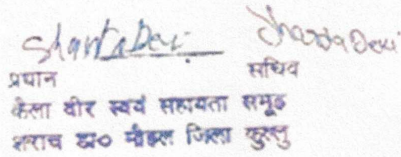 Shanta Devi Sharda Devi
प्रधान सचिव
कैला वीर स्वयं सहायता समूह
शराच डा० मौहल जिला कुल्लु